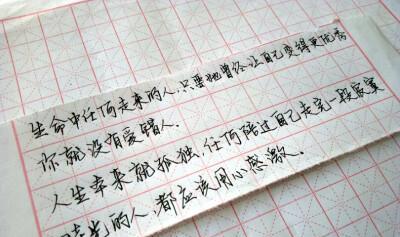 生命中任何走来的人,只要她曾经让自己变得更优秀
你就没有爱错人.
人生本来就孤独,任何陪过自己走完一段寂寞
时光的人,都应该用心感激.